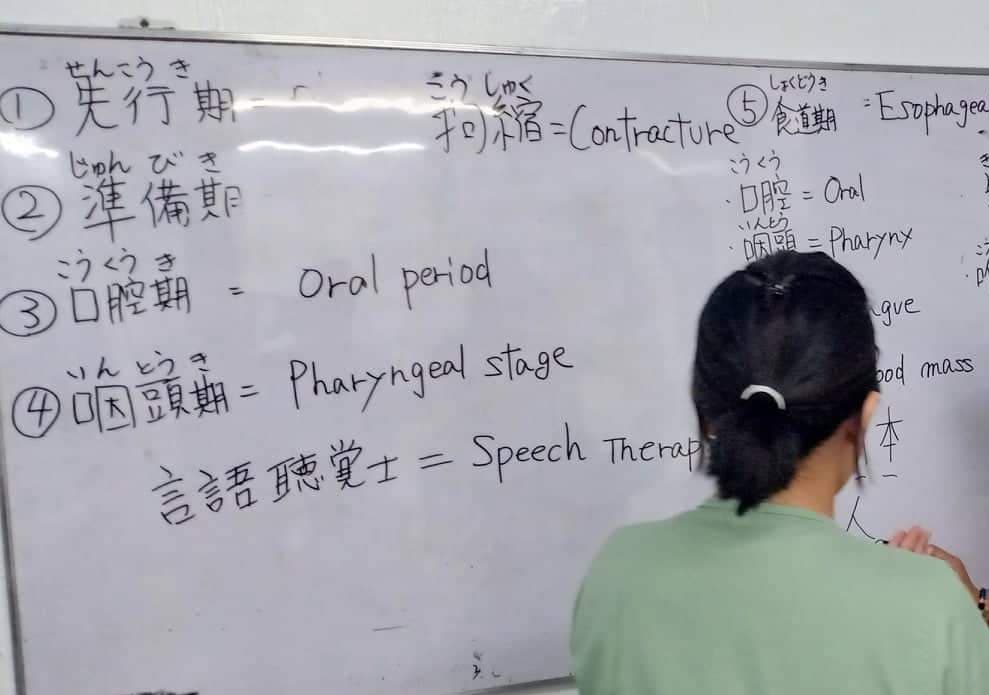 せんこうき
① 先行期 -
じゅんびき
② 準備期
こうくうき
③ 口腔期 = Oral period
いんとうき
④ 咽頭期 = Pharyngeal stage
言語聴覚士 = Speech Therap
こうしゅく
拘縮 = Contracture
しょくどうき
⑤ 食道期 = Esophagea
こうくう
・口腔 = Oral
いんとう
・咽頭 = Pharynx
gue
ood mass
本
人